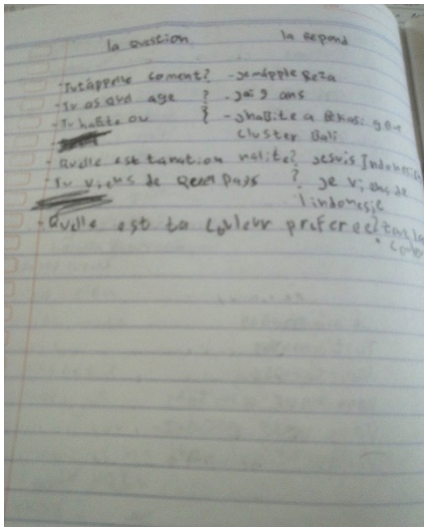 la question la Repond
-Tutappelle coment? -jemapple Reza
-Tu as quel age ? -jai 9 ans
-Tu habite ou ? -jhabite a Bekasi
cluster Bali
-Quelle est tanation nalite? jesuis Indonesia
-Tu viens de Quel Pays ? je viens de
l'indonesie
-Quelle est ta couleur preferee?